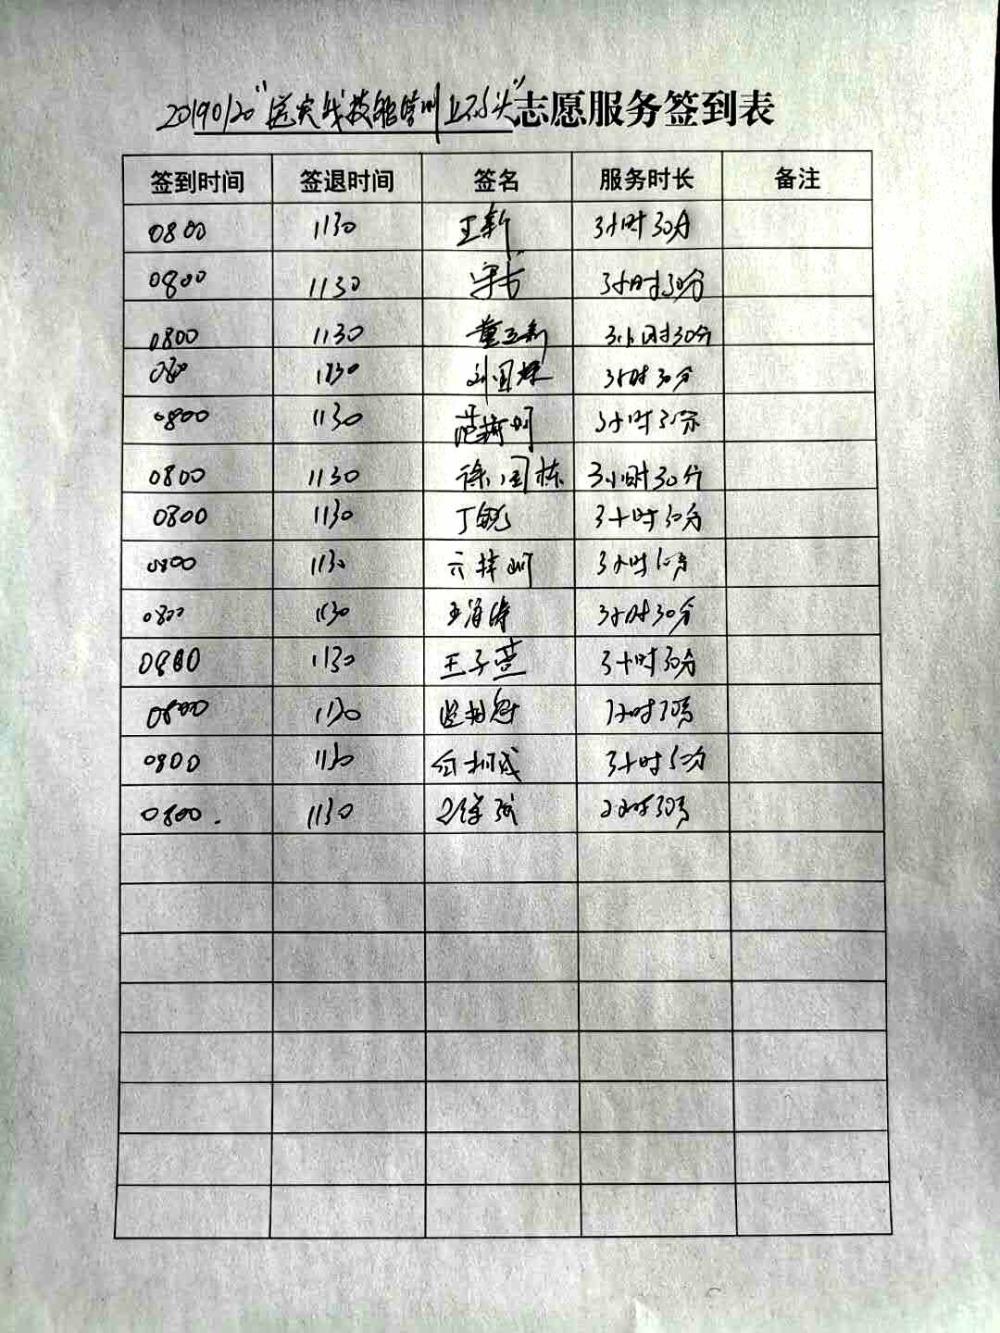 20190120"送实战技能培训上石头"志愿服务签到表
签到时间 签退时间 签名 服务时长 备注
0800 1130 王新 3小时30分
0800 1130 3小时30分
0800 1130 董立新 3小时30分
080 1130 刘国栋 3小时30分
0800 1130 3小时30分
0800 1130 徐国栋 3小时30分
0800 1130 丁锐 3小时30分
0800 1130 3小时30分
0800 1130 王海涛 3小时30分
0800 1130 王子萱 3小时30分
0800 1130 小时
0800 1130 3小时30分
0800. 1130 小时30分